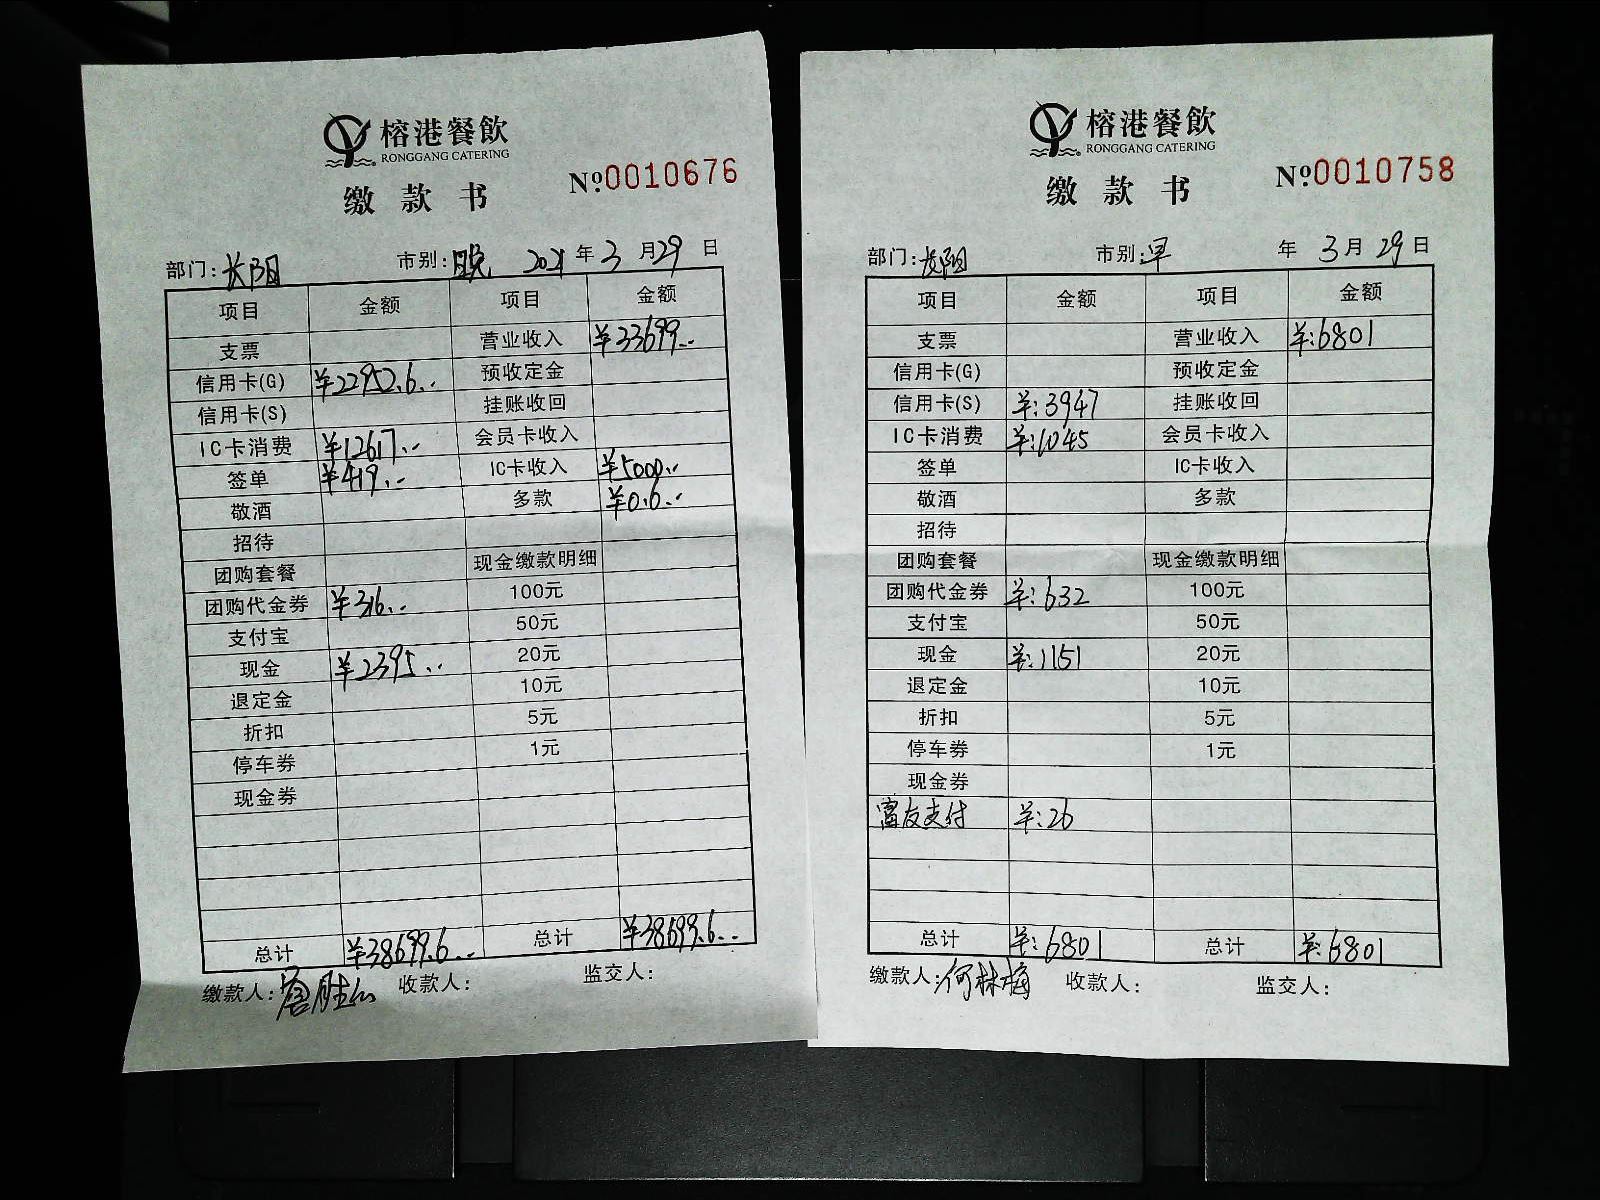 榕港餐飲
RONGGANG CATERING
缴款书
№0010676
部门:长阳 市别:晚 2021年3月29日
项目 金额 项目 金额
支票 营业收入 ¥33699..
信用卡(G) ¥22952.6.. 预收定金
信用卡(S) 挂账收回
IC卡消费 ¥12617.. 会员卡收入
签单 ¥419.. IC卡收入 ¥5000..
敬酒 多款 ¥0.6..
招待
团购套餐 现金缴款明细
团购代金券 ¥316.. 100元
支付宝 50元
现金 ¥2395.. 20元
退定金 10元
折扣 5元
停车券 1元
现金券
总计 ¥38699.6.. 总计 ¥38699.6..
缴款人: 收款人: 监交人:
榕港餐飲
RONGGANG CATERING
缴款书
№0010758
部门:长阳 市别:早 年3月29日
项目 金额 项目 金额
支票 营业收入 ¥:6801
信用卡(G) 预收定金
信用卡(S) ¥:3947 挂账收回
IC卡消费 ¥:1045 会员卡收入
签单 IC卡收入
敬酒 多款
招待
团购套餐 现金缴款明细
团购代金券 ¥:632 100元
支付宝 50元
现金 ¥:1151 20元
退定金 10元
折扣 5元
停车券 1元
现金券
富友支付 ¥:26
总计 ¥:6801 总计 ¥:6801
缴款人:何林梅 收款人: 监交人: